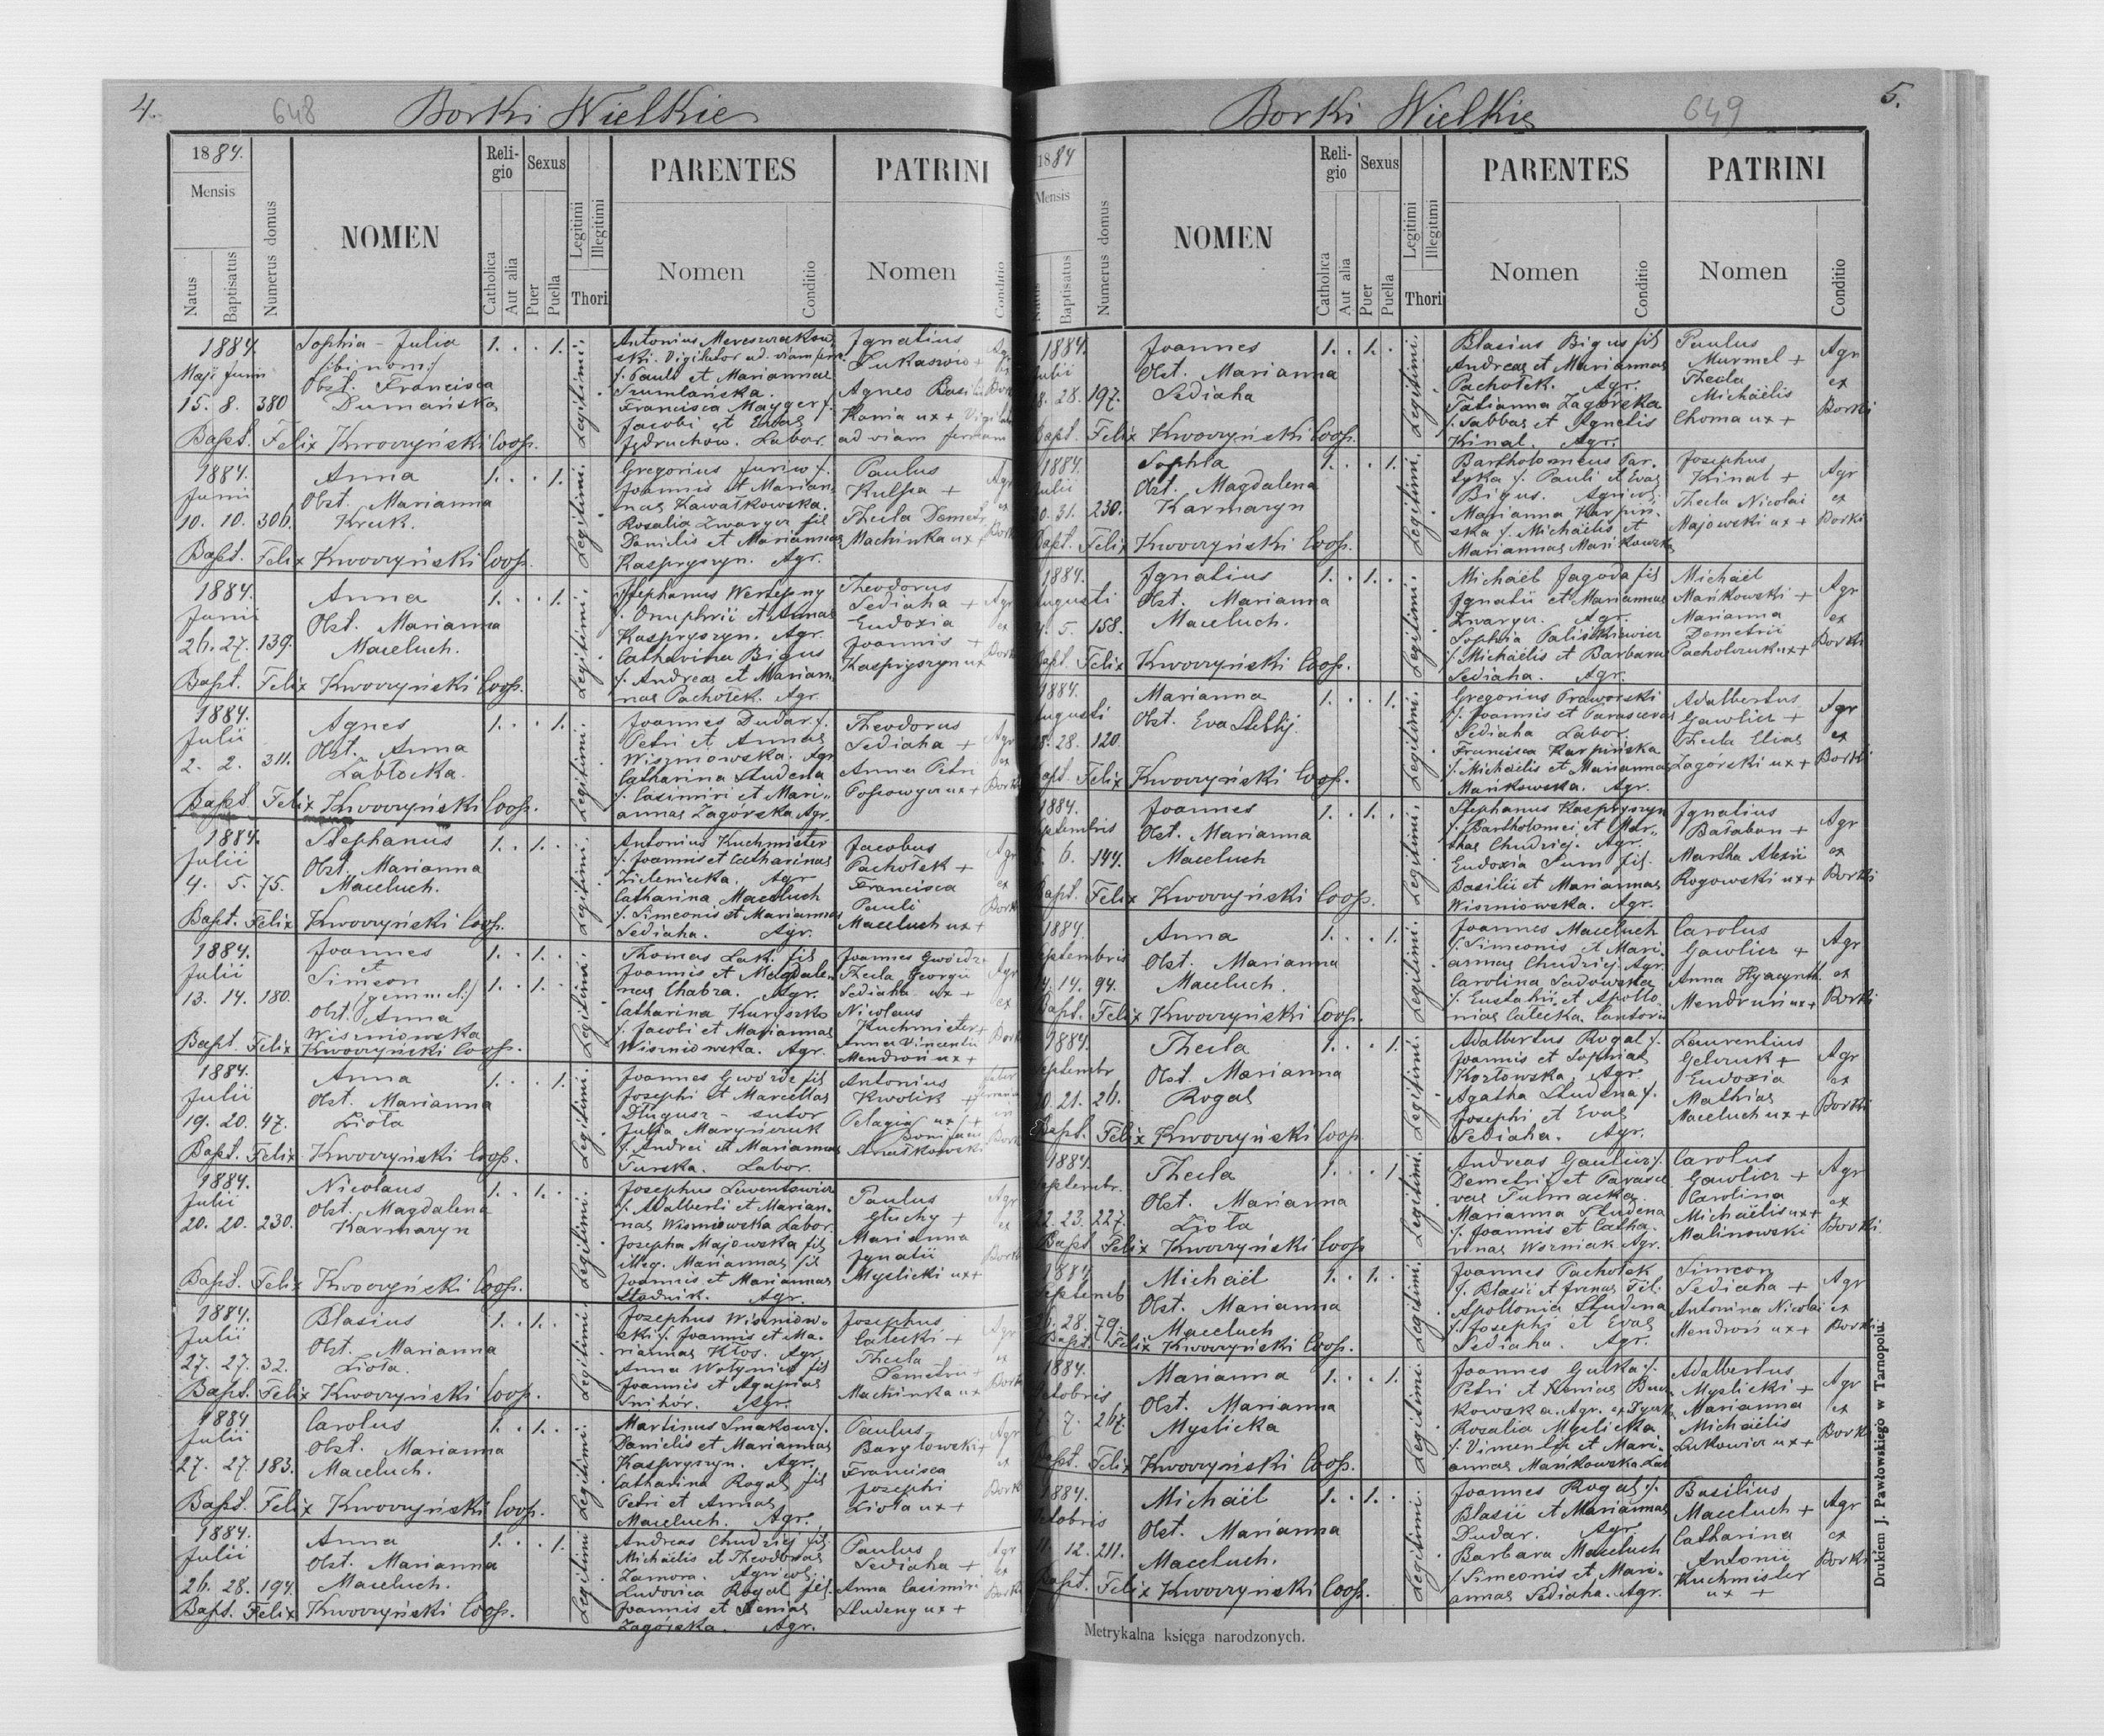 4.
648
Borki Wielkie
1884.
Mensis
Natus
Baptisatus
Numerus domus
NOMEN
Religio
Catholica
Aut alia
Sexus
Puer
Puella
Legitimi
Illegitimi
Thori
PARENTES
Nomen
Conditio
PATRINI
Nomen
Conditio
1884.
Maji Junii
15. 8. 380
Sophia - Julia
Obst. Francisca
Dumańska
1. . . 1.
Legitimi.
Antonius
ski. Vigilator ad viam ferr.
f. Pauli et Mariannae
Francisca
Jacobi et Evae
Labor.
Ignatius
Agnes Basilii
Kania ux + Vigilat
ad viam ferream
Bapt. Felix Kwoczyński Coop.
1884.
Junii
10. 10. 306.
Anna
Obst. Marianna
Kruk.
1. . . 1.
Legitimi.
Gregorius Juriw f.
Joannis et Marian-
nae Kawałkowska.
Rosalia Zwarycz fil
Danielis et Mariannae
Kaspryszyn. Agr.
Paulus
Kulpa +
Thecla Demetr.
Machinka ux +
Bapt. Felix Kwoczyński Coop.
1884.
Junii
26. 27. 139.
Anna
Obst. Marianna
Maceluch.
1. . . 1.
Legitimi.
Stephanus Wertepny
f. Onuphrii et Annae
Kaspryszyn. Agr.
Catharina Bigus
f. Andreae et Marian-
nae Pachołek. Agr.
Theodorus
Sediaha +
Eudoxia
Joannis +
Kaspryszyn ux
Bapt. Felix Kwoczyński Coop.
1884.
Julii
2. 2. 311.
Agnes
Obst. Anna
Zabłocka.
1. . . 1.
Legitimi.
Joannes Dudar f.
Petri et Annae
Wiszniowska. Agr
Catharina Studena
f. Casimiri et Mari-
annae Zagórska Agr.
Theodorus
Sediaha +
Anna Petri
ux +
Bapt. Felix Kwoczyński Coop.
1884.
Julii
4. 5. 75.
Stephanus
Obst. Marianna
Maceluch.
1. . 1. .
Legitimi.
Antonius Kuchmister
f. Joannis et Catharinae
Zieleniecka. Agr
Catharina Maceluch
f. Simeonis et Mariannae
Sediaha. Agr.
Jacobus
Pachołek +
Francisca
Pauli
Maceluch ux +
Bapt. Felix Kwoczyński Coop.
1884.
Julii
13. 14. 180.
Joannes
et
Simeon
(gemmel:)
Obst. Anna
Wiszniowska
1. . 1. .
1. . 1. .
Legitimi.
Thomas Lak. fil
Joannis et Magdale-
nae Chabra. Agr.
Catharina Kuryszko
f. Jacobi et Mariannae
Wiszniowska. Agr.
Joannes Gwóźdz
Thecla Georgii
Sediaha ux +
Nicolaus
Kuchmister +
Anna Vincentii
Mendroń ux +
Bapt. Felix Kwoczyński Coop.
1884.
Julii
19. 20. 47.
Anna
Obst. Marianna
Liota
1. . . 1.
Legitimi.
Joannes Gwóźdz fil
Josephi et Marcellae
Długusz - sutor
Julia Maryńczuk
f. Andrei et Mariannae
Turska. Labor.
Antonius
Kwolik +
Pelagia ux +
Bapt. Felix Kwoczyński Coop.
1884.
Julii
20. 20. 230.
Nicolaus
Obst. Magdalena
Karmazyn
1. . 1. .
Legitimi.
Josephus Lewentowicz
f. Adalberti et Marian-
nae Wiszniowska Labor.
Josepha Majowska fil
illeg. Mariannae fil
Joannis et Mariannae
Stadnik. Agr.
Paulus
Głuchy +
Marianna
Ignatii
Myslicki ux +
Bapt. Felix Kwoczyński Coop.
1884.
Julii
27. 27. 32.
Blasius
Obst. Marianna
Liota.
1. . 1. .
Legitimi.
Josephus Wiszniow-
ski f. Joannis et Ma-
riannae Kłos. Agr.
Anna Wołyniec fil
Joannis et Agapiae
Snihór. Agr.
Josephus
Calecki +
Thecla
Demetrii
Machinka ux
Bapt. Felix Kwoczyński Coop.
1884
Julii
27. 27. 183.
Carolus
Obst. Marianna
Maceluch.
1. . 1. .
Legitimi.
Martinus Smakouz f.
Danielis et Mariannae
Kaspryszyn. Agr.
Catharina Rogal fil
Petri et Annae
Maceluch. Agr.
Paulus
Baryłowski +
Francisca
Josephi
Liota ux +
Bapt. Felix Kwoczyński Coop.
1884.
Julii
26. 28. 194.
Anna
Obst. Marianna
Maceluch.
1. . . 1.
Legitimi
Andreas Chudzij fil.
Michaëlis et Theodosiae
Zamora. Agricol.
Ludovica Rogal fil.
Joannis et Xeniae
Zagórska. Agr.
Paulus
Sediaha +
Anna Casimiri
Studeny ux +
Bapt. Felix Kwoczyński Coop.
5.
649
Borki Wielkie
1884
Mensis
Natus
Baptisatus
Numerus domus
NOMEN
Religio
Catholica
Aut alia
Sexus
Puer
Puella
Legitimi
Illegitimi
Thori
PARENTES
Nomen
Conditio
PATRINI
Nomen
Conditio
1884.
Julii
28. 197.
Joannes
Obst. Marianna
Sediaha
1. . 1. .
Legitimi.
Blasius Bigus fil
Andreae et Mariannae
Pachołek. Agr.
Tatianna Zagórska
f. Sabbae et Agnetis
Kinal. Agr.
Paulus
Murmel +
Thecla
Michaëlis
Choma ux +
Agr
ex
Borki
Bapt. Felix Kwoczyński Coop.
1884.
Julii
30. 31. 230.
Sophia
Obst. Magdalena
Karmazyn
1. . . 1.
Legitimi.
Bartholomeus Par-
tyka f. Pauli et Evae
Bigus. Agricol.
Marianna Karpiń-
ska f. Michaëlis et
Mariannae Mańkowska
Josephus
Kinal +
Thecla Nicolai
Majowski ux +
Agr
ex
Borki
Bapt. Felix Kwoczyński Coop.
1884.
Augusti
5. 158.
Ignatius
Obst. Marianna
Maceluch.
1. . 1. .
Legitimi.
Michaël Jagoda fil
Ignatii et Mariannae
Zwarycz. Agr.
Sophia Paliśkiewicz
f. Michaëlis et Barbarae
Sediaha. Agr.
Michaël
Mańkowski +
Marianna
Demetrii
Pacholczuk ux +
Agr
ex
Borki
Bapt. Felix Kwoczyński Coop.
1884.
Augusti
28. 120.
Marianna
Obst. Eva
1. . . 1.
Legitimi.
Gregorius Praworski
f. Joannis et Parascevae
Sediaha Labor.
Francisca Karpińska
f. Michaëlis et Mariannae
Mańkowska. Agr.
Adalbertus
Gawlicz +
Thecla Eliae
Zagórski ux +
Agr
ex
Borki
Bapt. Felix Kwoczyński Coop.
1884.
Septembris
6. 144.
Joannes
Obst. Marianna
Maceluch
1. . 1. .
Legitimi.
Stephanus Kaspryszyn
f. Bartholomei et Mar-
thae Chudzij. Agr.
Eudoxia Sum fil.
Basilii et Mariannae
Wiszniowska. Agr.
Ignatius
Bałaban +
Martha Alexii
Rogowski ux +
Agr
ex
Borki
Bapt. Felix Kwoczyński Coop.
1884.
Septembris
14. 14. 94.
Anna
Obst. Marianna
Maceluch.
1. . . 1.
Legitimi.
Joannes Maceluch
f. Simeonis et Mari-
annae Chudzij. Agr.
Carolina Sadowska
f. Eustachii et Apollo-
niae Calecka. Cantoris
Carolus
Gawlicz +
Anna Hyacynth.
Mendruń ux +
Agr
ex
Borki
Bapt. Felix Kwoczyński Coop.
1884.
Septembr
20. 21. 26.
Thecla
Obst. Marianna
Rogal
1. . . 1.
Legitimi.
Adalbertus Rogal f.
Joannis et Sophiae
Kozłowska. Agr.
Agatha Studena f.
Josephi et Evae
Sediaha. Agr.
Laurentius
Gelczuk +
Eudoxia
Mathiae
Maceluch ux +
Agr
ex
Borki
Bapt. Felix Kwoczyński Coop
1884.
Septembr.
22. 23. 227.
Thecla
Obst. Marianna
Liota
1. . . 1
Legitimi.
Andreas Gaulicz f.
Demetrii et Parasce
vae Tulmacka.
Marianna Studena
f. Joannis et Catha-
rinae Woźniak Agr.
Carolus
Gawlicz +
Carolina
Michaëlis ux +
Malinowski
Agr
ex
Borki
Bapt Felix Kwoczyński Coop
1884
Septemb
28. 79.
Michaël
Obst. Marianna
Maceluch
1. . 1. .
Legitimi.
Joannes Pachołek
f. Blasii et Irenae Fil.
Apollonia Studena
f. Josephi et Evae
Sediaha. Agr.
Simeon
Sediaha +
Antonina Nicolai
Mendroń ux +
Agr
ex
Borki
Bapt. Felix Kwoczyński Coop.
1884
Octobris
7. 7. 267.
Marianna
Obst. Marianna
Myslicka
1. . . 1.
Legitimi.
Joannes Gulka f.
Petri et Xeniae
kowska. Agr.
Rozalia Myslicka
f. Vincentii et Mari-
annae Mańkowska
Adalbertus
Myslicki +
Marianna
Michaëlis
Łukowicz ux +
Agr
ex
Borki
Bapt. Felix Kwoczyński Coop.
1884.
Octobris
11. 12. 211.
Michaël
Obst. Marianna
Maceluch.
1. . 1. .
Legitimi.
Joannes Rogal f.
Blasii et Mariannae
Dudar. Agr
Barbara Maceluch
f. Simeonis et Mari-
annae Sediaha. Agr.
Basilius
Maceluch +
Catharina
Antonii
Kuchmister
ux +
Agr
ex
Borki
Bapt. Felix Kwoczyński Coop.
Metrykalna księga narodzonych.
Drukiem J. Pawłowskiego w Tarnopolu.